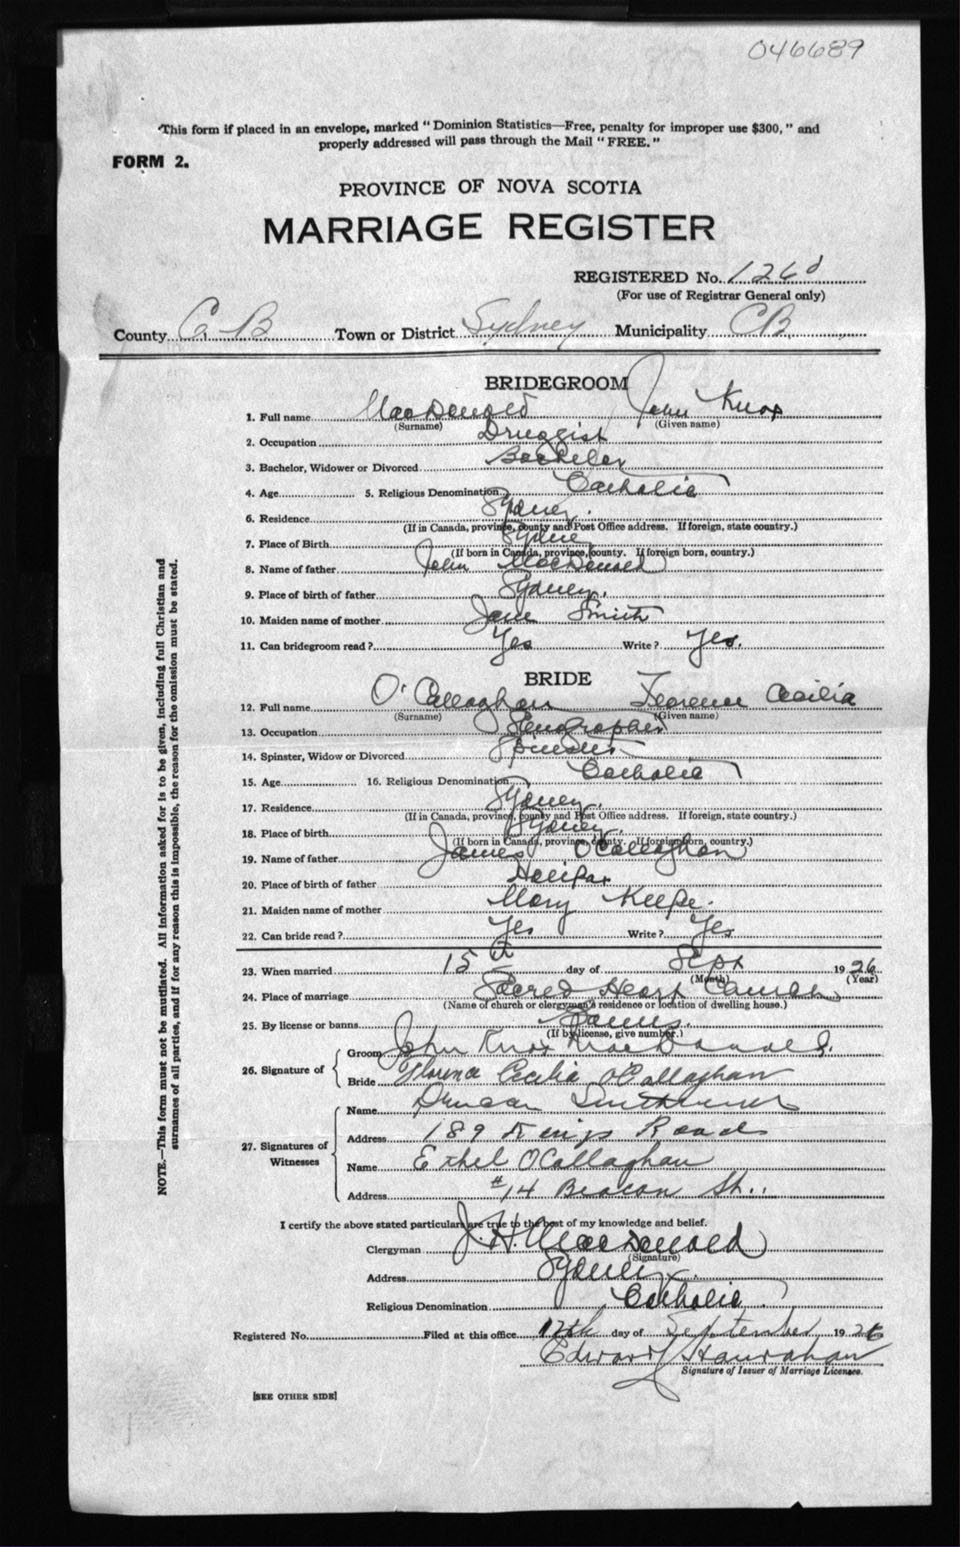 046689
"This form if placed in an envelope, marked "Dominion Statistics—Free, penalty for improper use $300," and
properly addressed will pass through the Mail "FREE."
FORM 2.
PROVINCE OF NOVA SCOTIA
MARRIAGE REGISTER
REGISTERED No. 1260
(For use of Registrar General only)
County C. B Town or District Sydney Municipality CB
BRIDEGROOM
1. Full name MacDonald John Knox
(Surname) (Given name)
2. Occupation Druggist
3. Bachelor, Widower or Divorced Bachelor
4. Age 5. Religious Denomination Catholic
6. Residence Sydney.
(If in Canada, province, county and Post Office address. If foreign, state country.)
7. Place of Birth Sydney
(If born in Canada, province, county. If foreign born, country.)
8. Name of father John MacDonald
9. Place of birth of father Sydney.
10. Maiden name of mother Jane Smith
11. Can bridegroom read? Yes Write? Yes.
BRIDE
12. Full name O'Callaghan Florence Cecilia
(Surname) (Given name)
13. Occupation Stenographer
14. Spinster, Widow or Divorced Spinster
15. Age 16. Religious Denomination Catholic
17. Residence Sydney.
(If in Canada, province, county and Post Office address. If foreign, state country.)
18. Place of birth Sydney.
(If born in Canada, province, county. If foreign born, country.)
19. Name of father James O'Callaghan
20. Place of birth of father Halifax
21. Maiden name of mother Mary Keefe.
22. Can bride read? Yes Write? Yes
23. When married 15th day of Sept 1926
(Month) (Year)
24. Place of marriage Sacred Heart Church
(Name of church or clergyman's residence or location of dwelling house.)
25. By license or banns Banns.
(If by license, give number.)
26. Signature of
Groom John Knox MacDonald.
Bride Florence Cecilia O'Callaghan
27. Signatures of Witnesses
Name Duncan
Address 189 Kings Road
Name Ethel O'Callaghan
Address #14 Beacon St.
I certify the above stated particulars are true to the best of my knowledge and belief.
Clergyman J. H. MacDonald
(Signature)
Address Sydney.
Religious Denomination Catholic
Registered No. Filed at this office 17th day of September 1926
Edward Hanrahan
Signature of Issuer of Marriage Licenses.
[SEE OTHER SIDE]
NOTE.—This form must not be mutilated. All information asked for is to be given, including full Christian and
surnames of all parties, and if for any reason this is impossible, the reason for the omission must be stated.